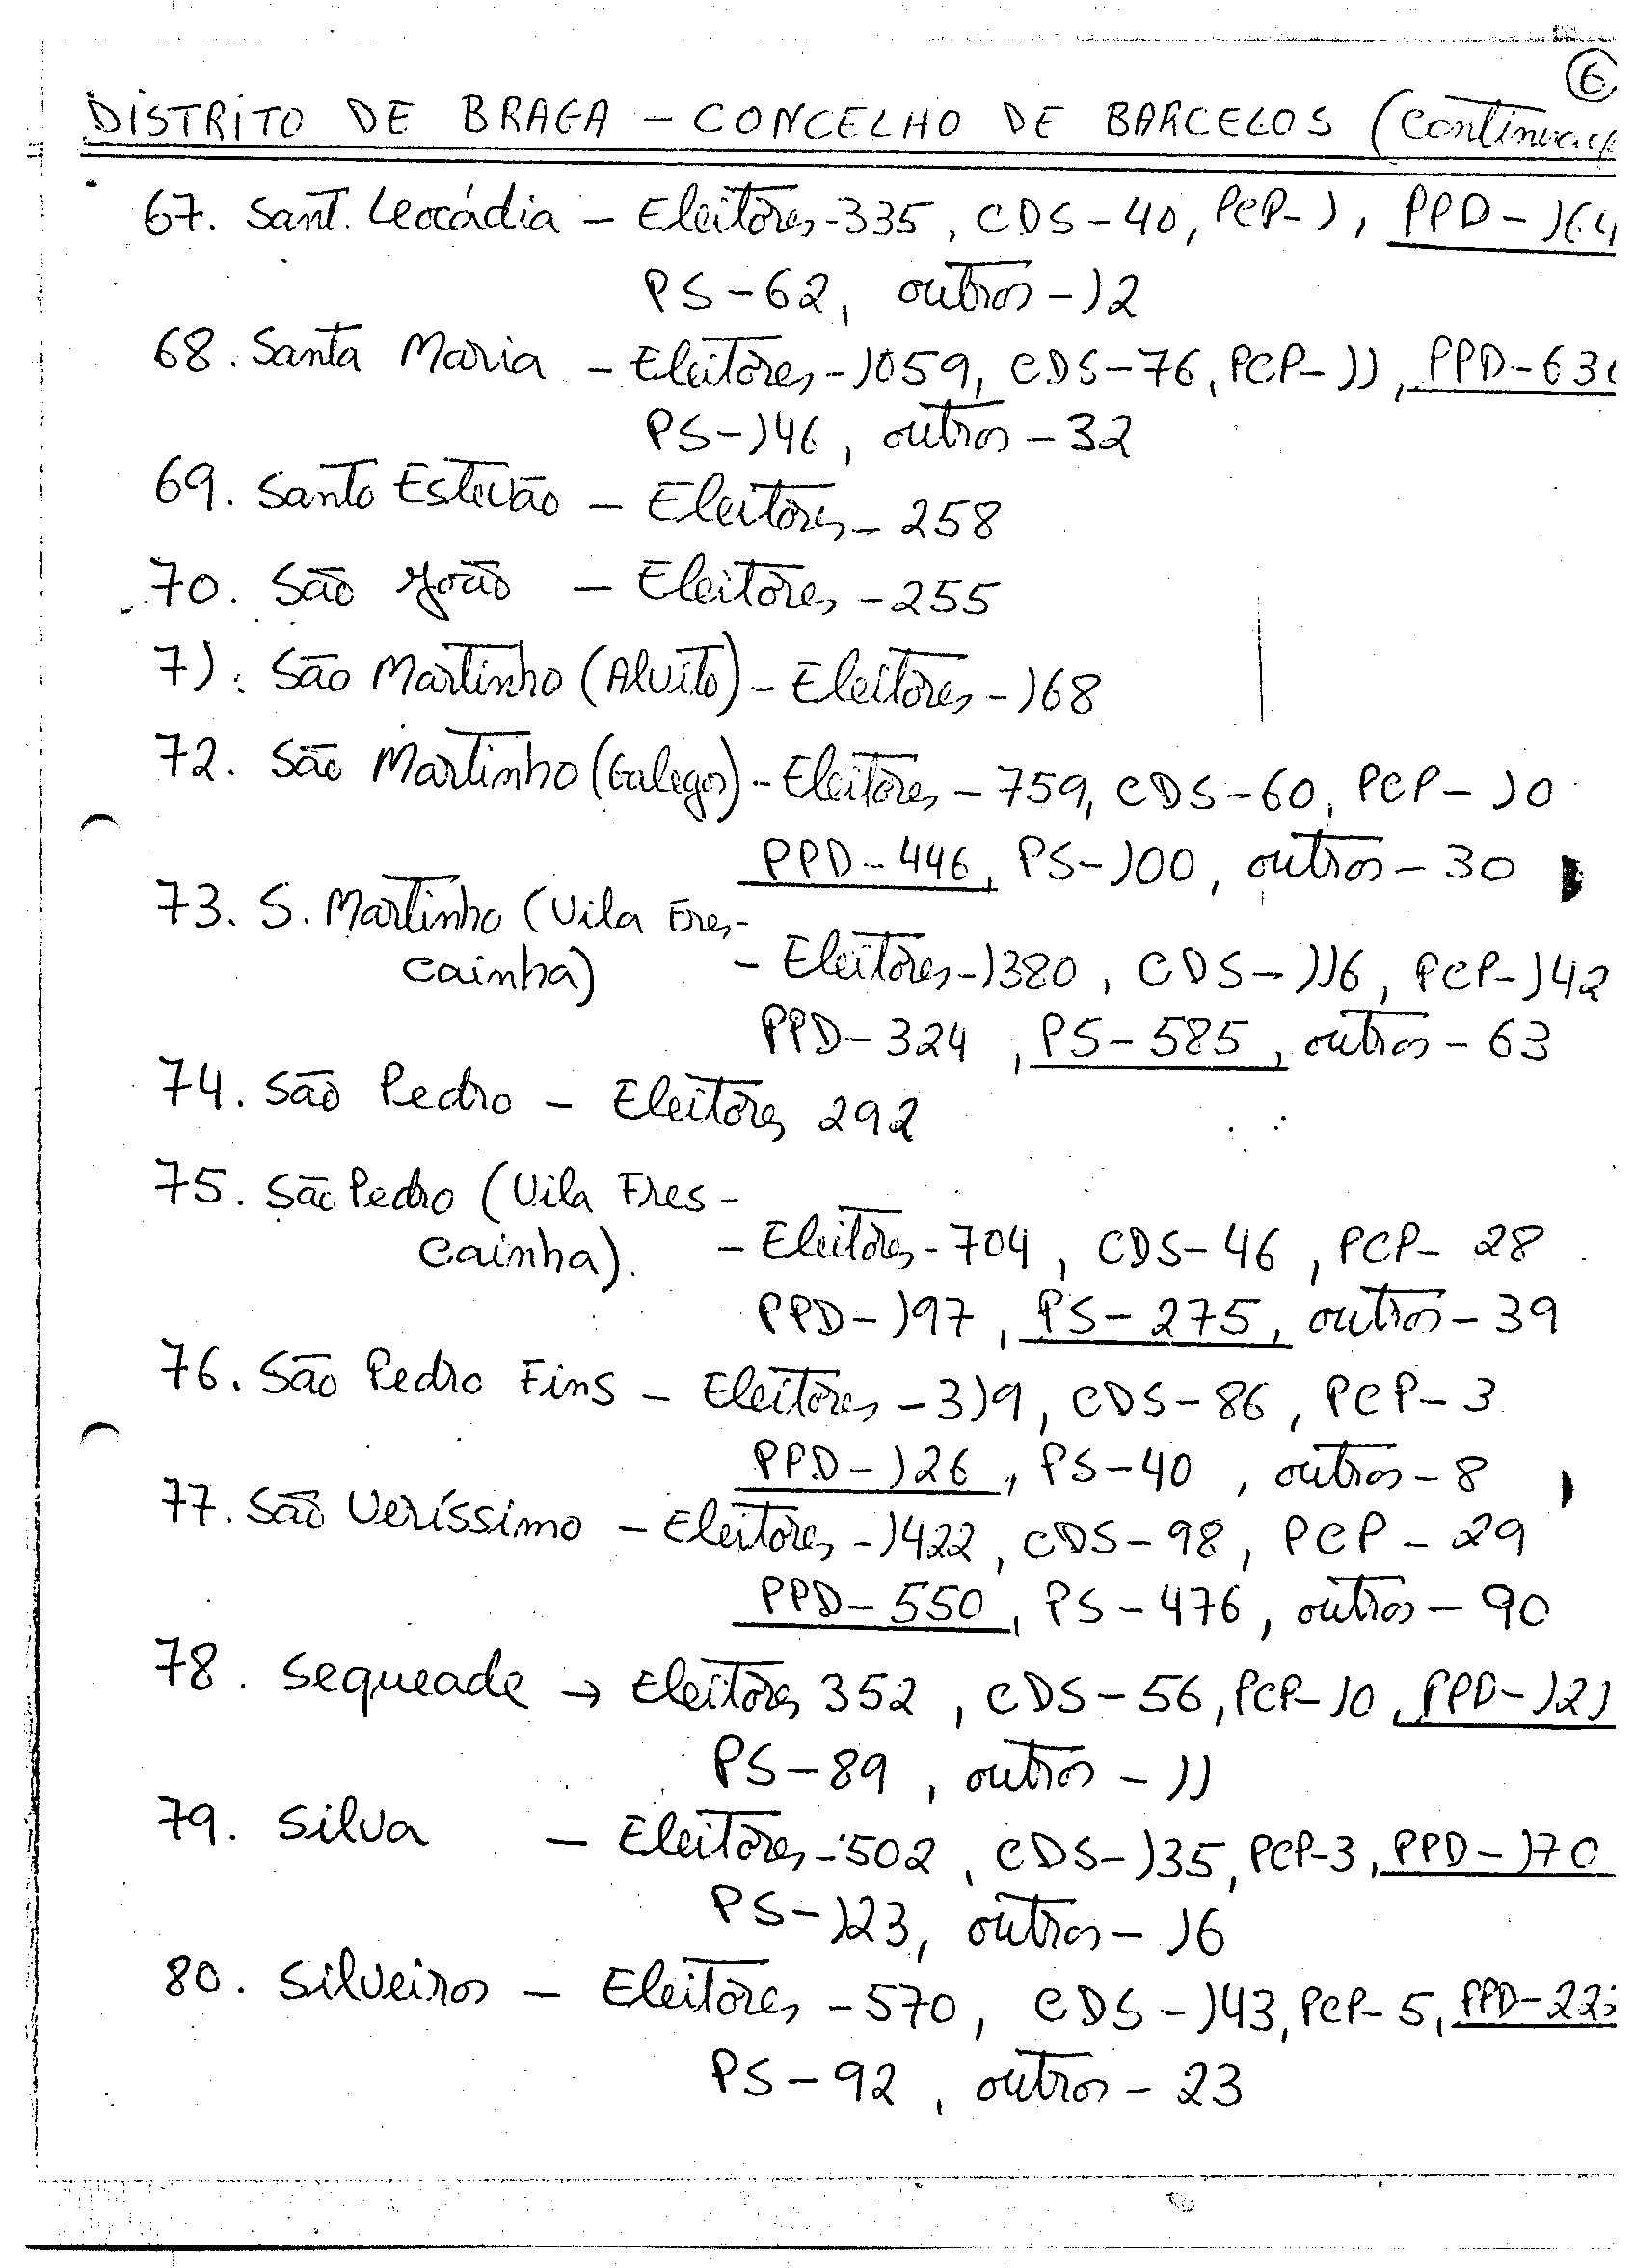 6
DISTRITO DE BRAGA - CONCELHO DE BARCELOS (Continuaç
67. Sant. Leocádia - Eleitores-335, CDS-40, PCP-1, PPD-164
PS-62, outros-12
68. Santa Maria - Eleitores-1059, CDS-76, PCP-11, PPD-63
PS-146, outros-32
69. Santo Estevão - Eleitores-258
70. São João - Eleitores-255
71. São Martinho (Alvito) - Eleitores-168
72. São Martinho (Galegos) - Eleitores-759, CDS-60, PCP-10
PPD-446, PS-100, outros-30
73. S. Martinho (Vila Fres-
cainha) - Eleitores-1380, CDS-116, PCP-142
PPD-324, PS-585, outros-63
74. São Pedro - Eleitores 292
75. São Pedro (Vila Fres-
cainha). - Eleitores-704, CDS-46, PCP-28
PPD-197, PS-275, outros-39
76. São Pedro Fins - Eleitores-319, CDS-86, PCP-3
PPD-126, PS-40, outros-8
77. São Veríssimo - Eleitores-1422, CDS-98, PCP-29
PPD-550, PS-476, outros-90
78. Sequeade → Eleitores 352, CDS-56, PCP-10, PPD-121
PS-89, outros-11
79. Silva - Eleitores-502, CDS-135, PCP-3, PPD-170
PS-123, outros-16
80. Silveiros - Eleitores-570, CDS-143, PCP-5, PPD-22
PS-92, outros-23